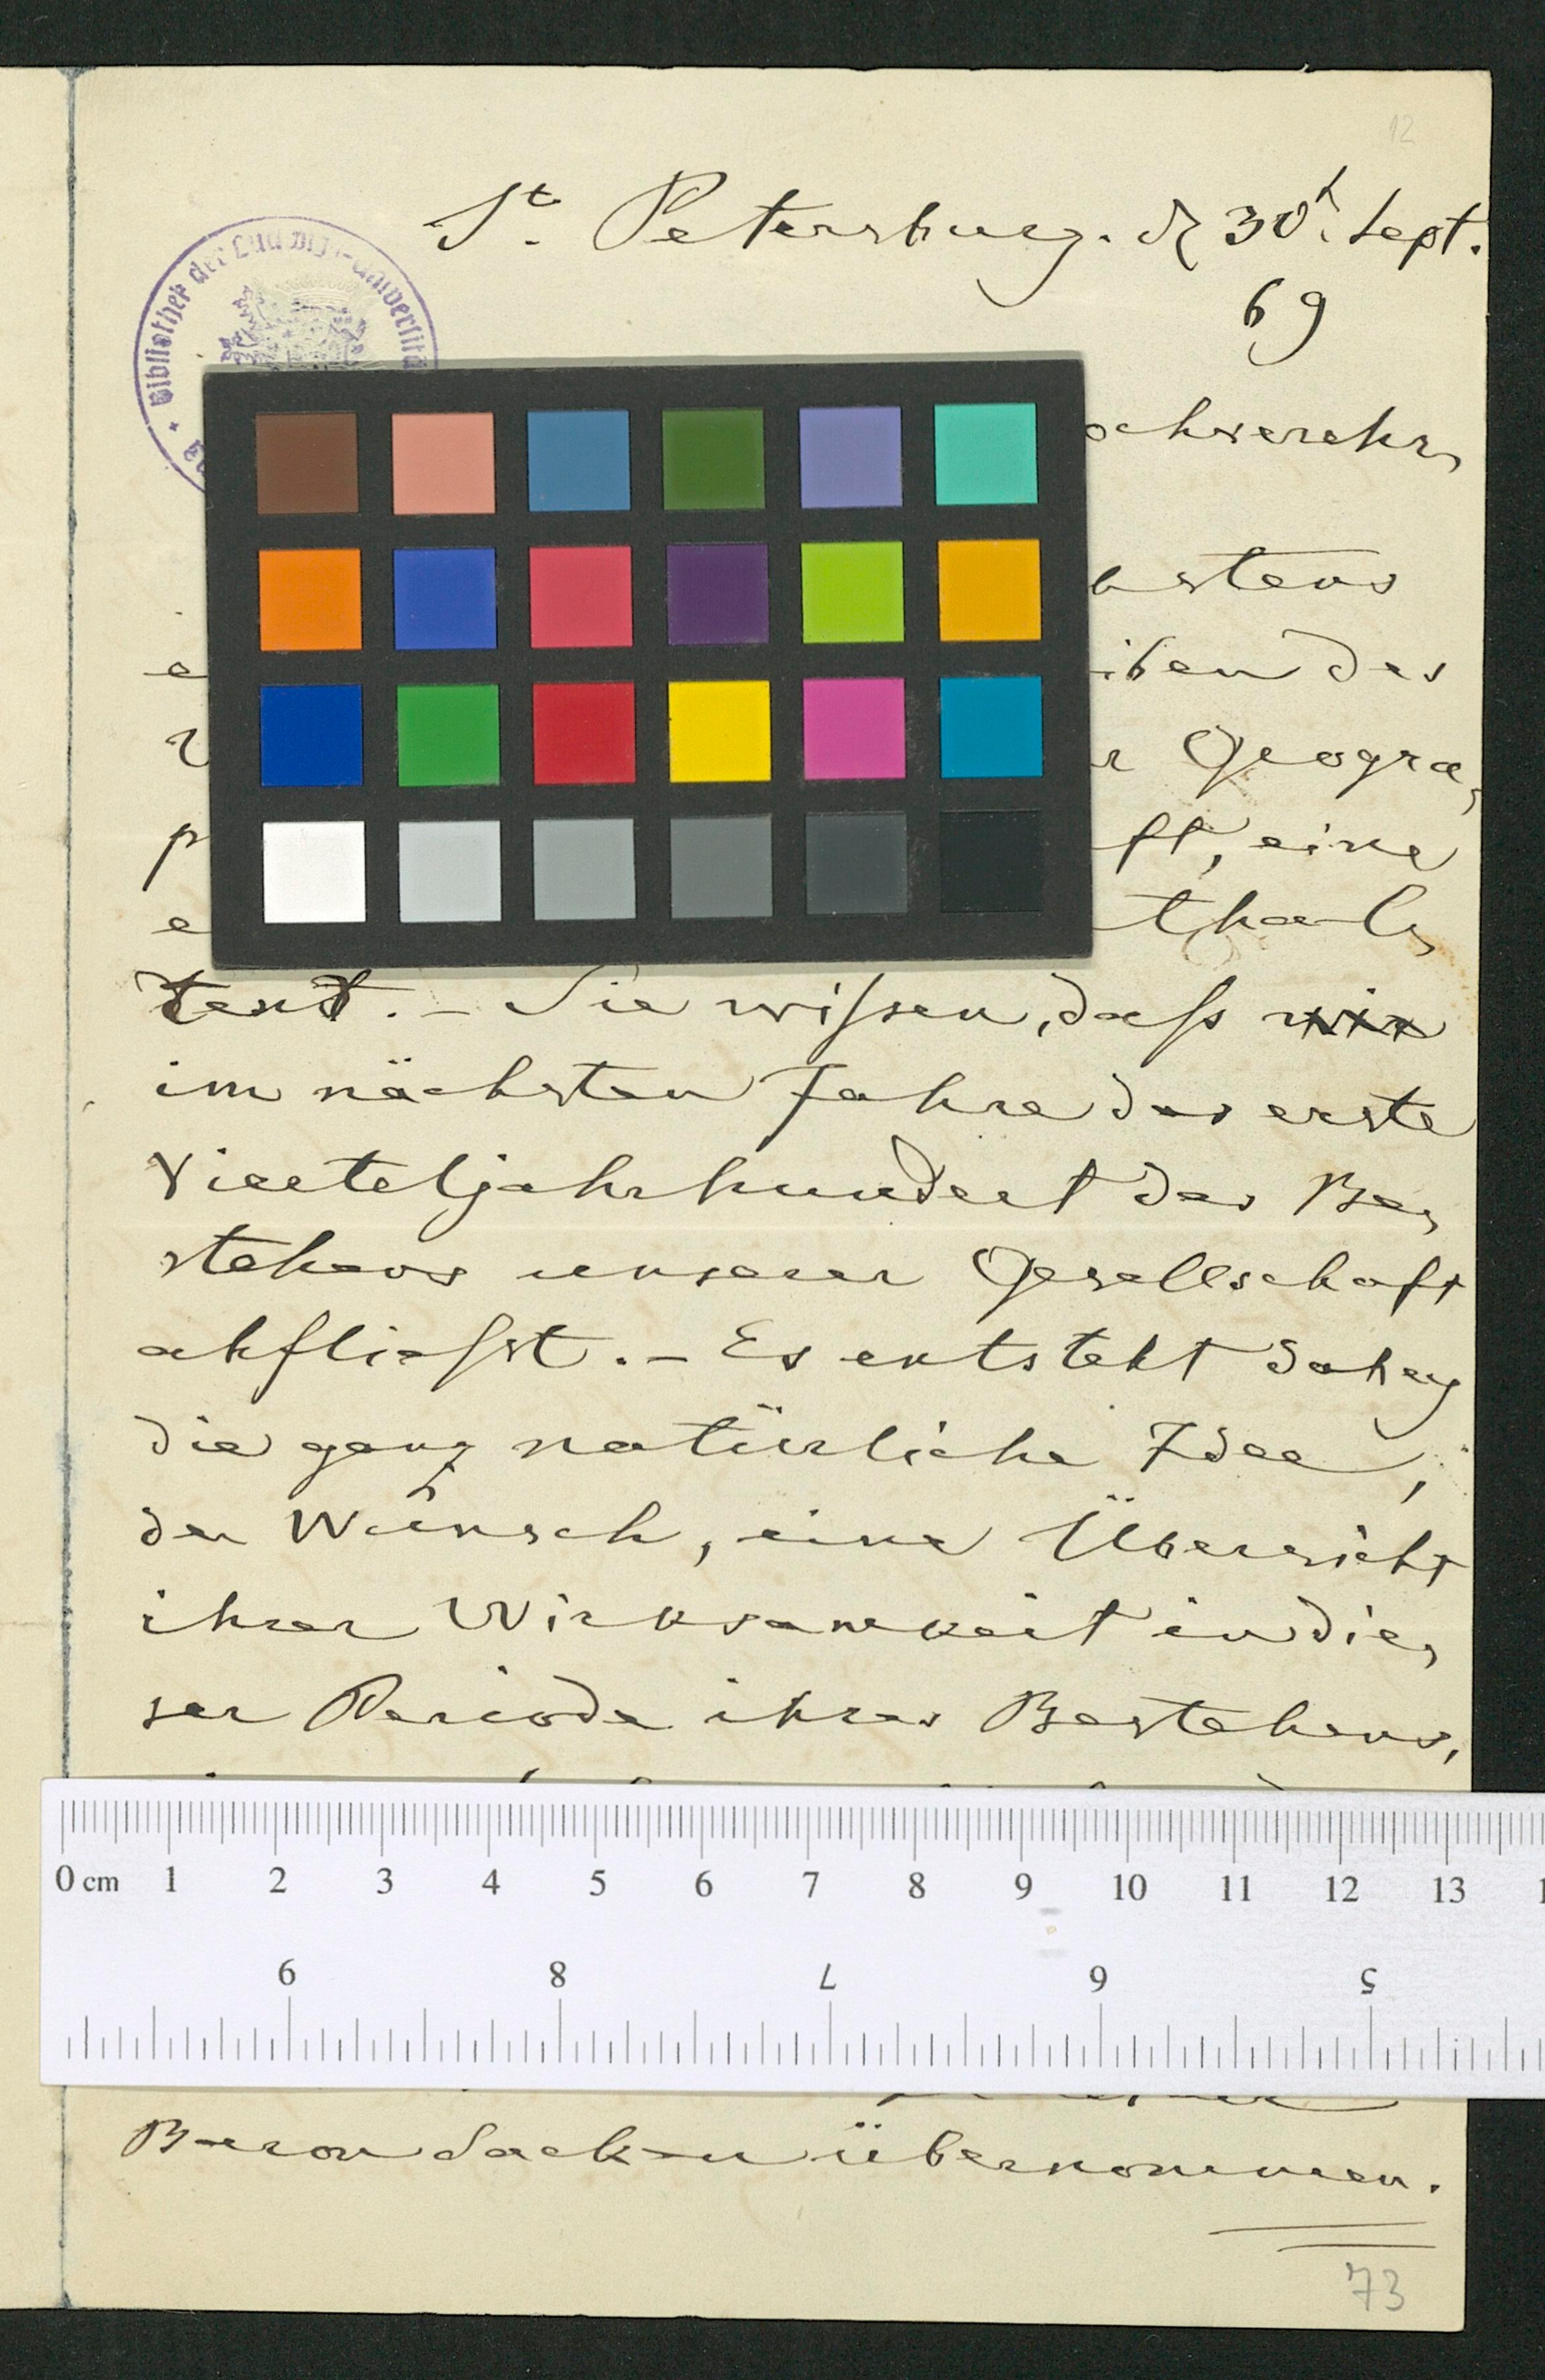 12
St. Petersburg. d 30t. Sept.
69
Bibliothek der Ludwigs-Universität
ochverehr,
stens
iben des
r Geogra,
ft, eine
thal,
tend. - Sie wissen, dass wir
im nächsten Jahre das erste
Vierteljahrhundert des Be,
stehens unserer Gesellschaft
abfliesst. - Es entsteht dabey
die ganz natürliche Idee,
der Wunsch, eine Übersicht
ihrer Wirksamkeit in die,
ser Periode ihres Bestehens,
0 cm 1 2 3 4 5 6 7 8 9 10 11 12 13
9 8 7 6 5
Baron Sacken übernommen.
73